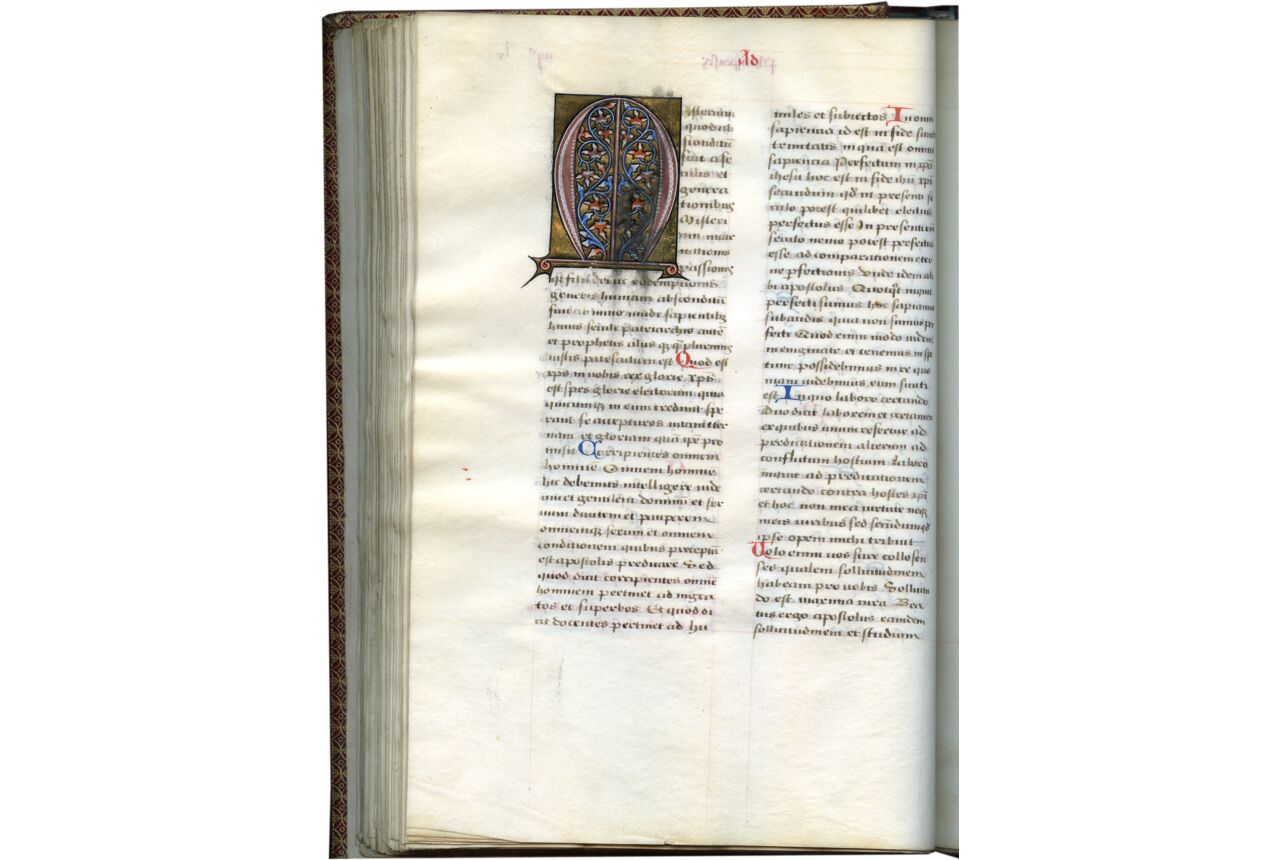 Ad
Misterium
quod ab
sconditū
fuit a se
culis et
genera
tionibus
Misteri
um incar
nationis
passionis
qȝ filii dei ac redemptionis
generis humani absconditū
fuit ab initio mundi sapientibȝ
huius seculi patriarchis autē
et prophetis aliis qȝ qȝpluribus
iustis patefactum est Quod est
xp̄s in vobis rex glorie xp̄s
est spes glorie electorum quia
quicumqȝ in eum credunt spe
rant se accepturos vitam eter
nam et gloriam quā ipe pro
misit Corripientes omnem
hominē Omnem hominē
hic debemus intelligere iude
um et gentilem dominū et ser
uum diuitem et pauperem
omnemqȝ sexum et omnem
conditionem quibus preceptū
est apostolis predicare Sed
quod dicit corripientes omnē
hominem pertinet ad ingra
tos et superbos Et quod di
cit docentes pertinet ad hu
miles et subiectos In omni
sapiencia id est in fide sancte
trinitatis in qua est omnis
sapiencia Perfectum in xp̄o
ihesu hoc est in fide ihū xp̄i
secundum qd̄ in presenti se
culo potest quilibet electus
perfectus esse In presenti em̄
seculo nemo potest perfectus
esse ad comparationem eter
ne p̄fectionis Unde idem ait
bi apostolus Quotqt̄ inquit
perfecti sumus hoc sapiamus
subaudis quia non sumus per
fecti Quod enim modo uidem̄
in enigmate et tenemus in spe
tunc possidebimus in re quo
niam uidebimus eum sicuti
est In quo laboro certando
Duo dicit laborem et certamen
ex quibus unum refertur ad
predicationem alterum ad
conflictum hostium Laboro
inquit ad predicationem
certando contra hostes xp̄i
et hoc non mea uirtute neqȝ
meis uiribus sed secūdum qd̄
ipse opem michi tribuit
Uolo enim uos scire collosen
ses qualem sollicitudinem
habeam pro uobis Sollicitu
do est maxima cura Bea
tus ergo apostolus eamdem
sollicitudinem et studium